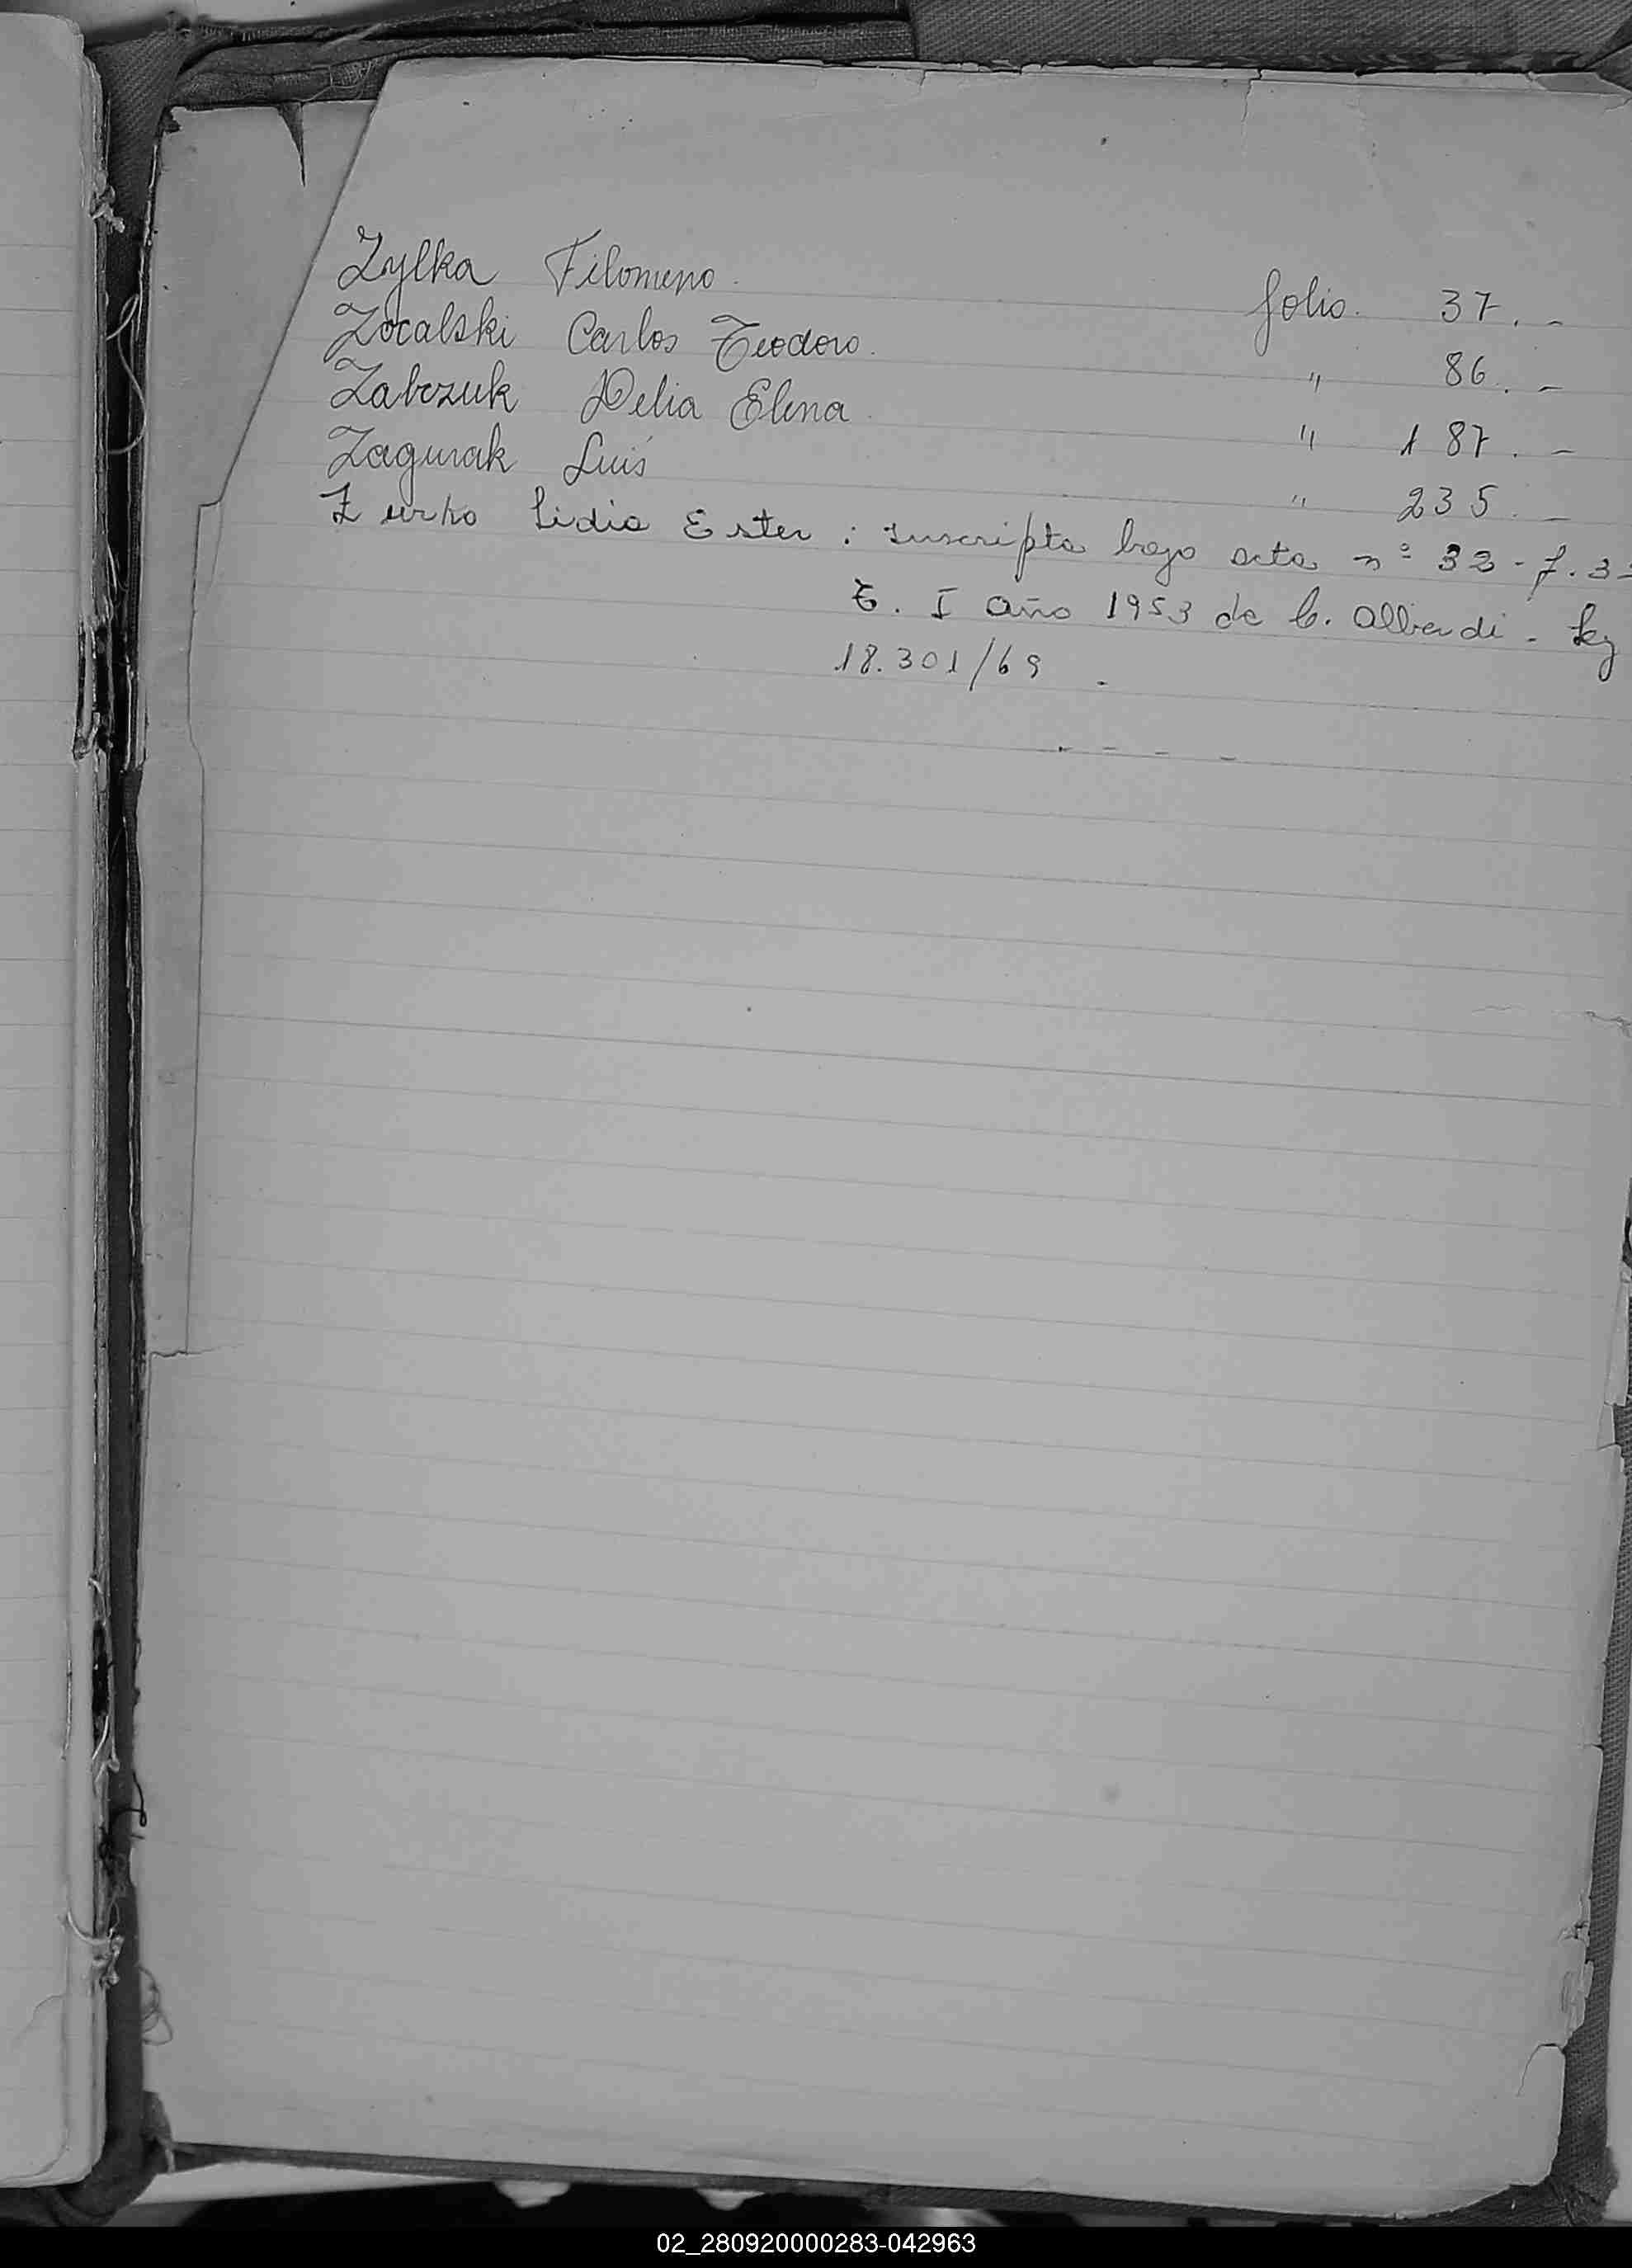 Zylka Filomeno. folio. 37. -
Zocalski Carlos Teodoro. " 86. -
Zabczuk Delia Elena. " 187. -
Zagurak Luis " 235. -
Zurko Lidia Ester : Inscripta bajo acta nº 32 - f. 32
T. I año 1953 de C. Alberdi - Ley
18.301/69 . -
02_280920000283-042963